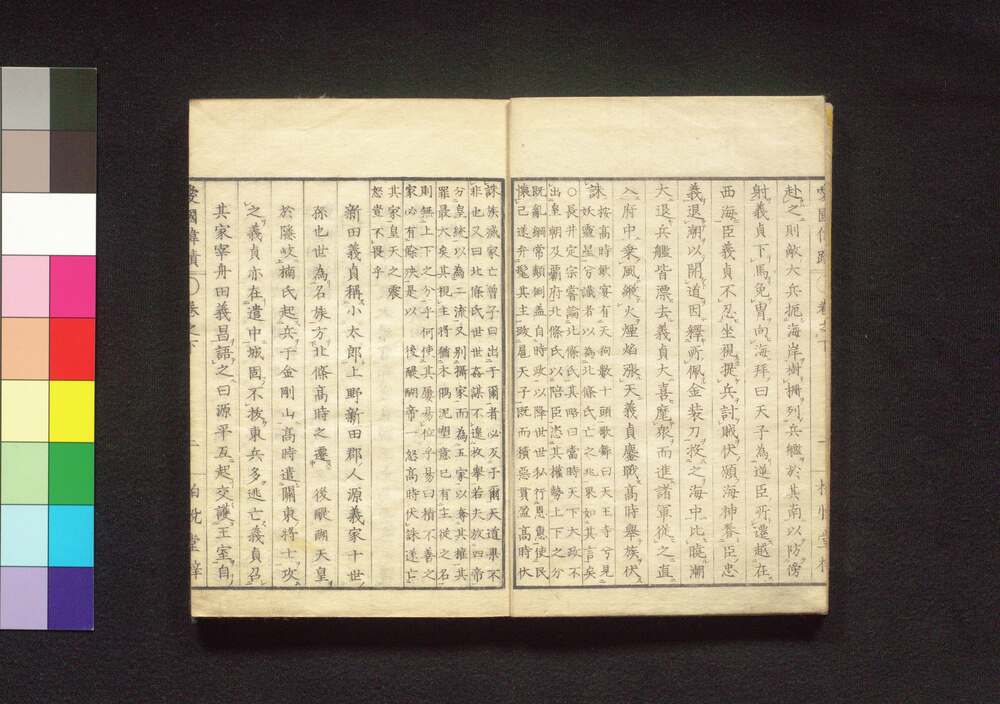 赴之則敵大兵扼海岸樹柵列兵艦於其南以防傍
射義貞下馬免冑向海拜曰天子為逆臣所遷越在
西海臣義貞不忍坐視提兵討賊伏願海神眷臣忠
義退潮以開道因釋所佩金裝刀投之海中比曉潮
大退兵艦皆漂去義貞大喜麾衆而進諸軍從之直
入府中乗風縱火煙焰漲天義貞鏖戰高時舉族伏
誅
按高時歓宴有天狗數十頭歌舞曰天王寺兮見
妖靈星兮識者以為北條氏亡之兆果如其言矣
○長井定宗嘗論北條氏其略曰當時天下大政不
出皇朝及幕府北條氏以陪臣恣其權勢上下之分
既亂綱常顛倒盖自時政以降世世私行恩惠使民
懐己遂弁髦其主改蓙天子既而積惡貫盈高時伏
誅族滅家亡曾子曰出于爾者必反于爾天道果不
非也又曰北條氏世世姦謀不遑枚擧若夫放四帝
分皇統以為二流又別攝家而為五家以奪其權其
罪最大矣其視主将猶木偶泥塑意已有主從之名
則無上下之分乎何使其屢易位乎易曰積不善之
家必有餘殃是以 後醍醐帝一怒高時伏誅遂亡
其家皇天之震
怒豈不畏乎
新田義貞稱小太郎上野新田郡人源義家十世
孫也世為名族方北條高時之遷 後醍醐天皇
於隠岐楠氏起兵于金剛山高時遣關東將士攻
之義貞亦在遣中城固不拔東兵多逃亡義貞召
其家宰舟田義昌語之曰源平互起交護王室自
愛國偉績 卷之下 二 柏悦堂梓